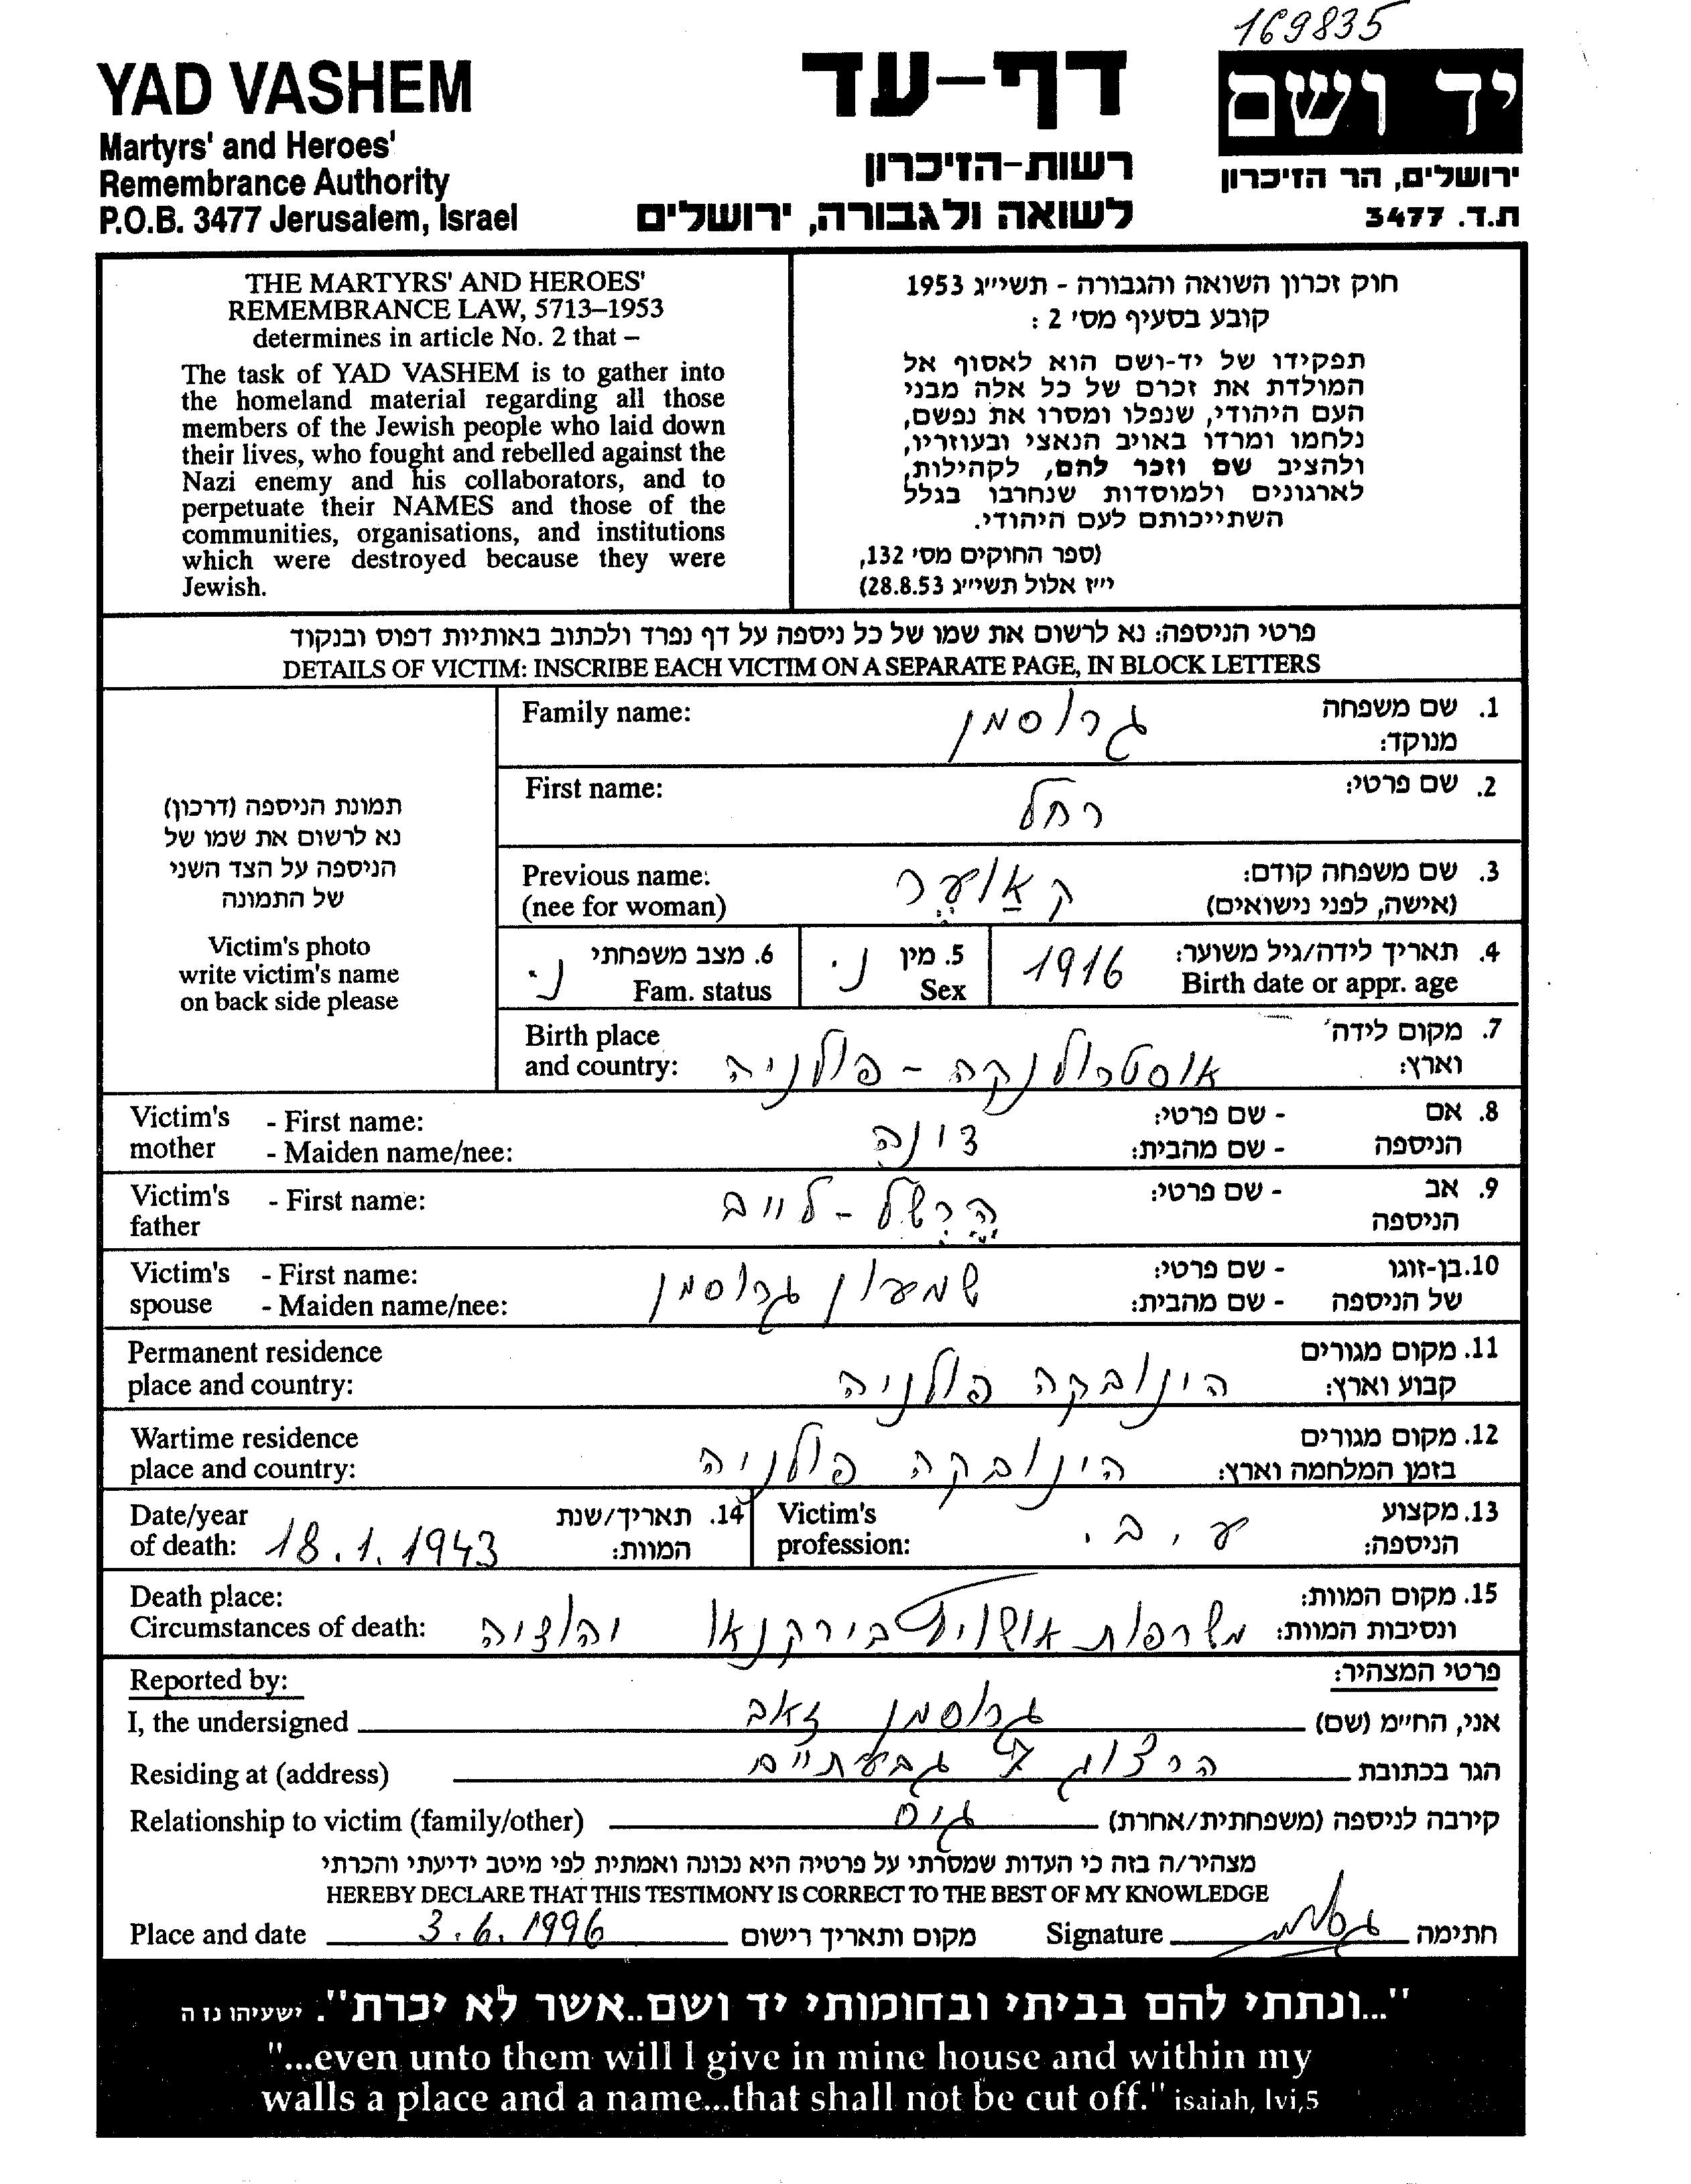 169835
YAD VASHEM
Martyrs' and Heroes'
Remembrance Authority
P.O.B. 3477 Jerusalem, Israel
דף-עד
רשות-הזיכרון
לשואה ולגבורה, ירושלים
יד ושם
ירושלים, הר הזיכרון
ת.ד. 3477
THE MARTYRS' AND HEROES'
REMEMBRANCE LAW, 5713–1953
determines in article No. 2 that –
The task of YAD VASHEM is to gather into
the homeland material regarding all those
members of the Jewish people who laid down
their lives, who fought and rebelled against the
Nazi enemy and his collaborators, and to
perpetuate their NAMES and those of the
communities, organisations, and institutions
which were destroyed because they were
Jewish.
חוק זכרון השואה והגבורה - תשי״ג 1953
קובע בסעיף מס׳ 2 :
תפקידו של יד-ושם הוא לאסוף אל
המולדת את זכרם של כל אלה מבני
העם היהודי, שנפלו ומסרו את נפשם,
נלחמו ומרדו באויב הנאצי ובעוזריו,
ולהציב שם וזכר להם, לקהילות,
לארגונים ולמוסדות שנחרבו בגלל
השתייכותם לעם היהודי.
(ספר החוקים מס׳ 132,
י״ז אלול תשי״ג 28.8.53)
פרטי הניספה: נא לרשום את שמו של כל ניספה על דף נפרד ולכתוב באותיות דפוס ובנקוד
DETAILS OF VICTIM: INSCRIBE EACH VICTIM ON A SEPARATE PAGE, IN BLOCK LETTERS
תמונת הניספה (דרכון)
נא לרשום את שמו של
הניספה על הצד השני
של התמונה
Victim's photo
write victim's name
on back side please
Family name: גרוסמן 1. שם משפחה
מנוקד:
First name: רחל 2. שם פרטי:
Previous name: קאַוּעֶר 3. שם משפחה קודם:
(nee for woman) (אישה, לפני נישואים)
6. מצב משפחתי נ. 5. מין נ. 1916 4. תאריך לידה/גיל משוער:
Fam. status Sex Birth date or appr. age
Birth place 7. מקום לידה
and country: אוסטרולנקה - פולניה וארץ:
Victim's - First name: - שם פרטי: 8. אם
mother - Maiden name/nee: דינה - שם מהבית: הניספה
Victim's - First name: הֶרְשֶל - לייב - שם פרטי: 9. אב
father הניספה
Victim's - First name: שמעון גרוסמן - שם פרטי: 10. בן-זוגו
spouse - Maiden name/nee: - שם מהבית: של הניספה
Permanent residence 11. מקום מגורים
place and country: הינובקה פולניה קבוע וארץ:
Wartime residence 12. מקום מגורים
place and country: הינובקה פולניה בזמן המלחמה וארץ:
Date/year 14. תאריך/שנת Victim's 13. מקצוע
of death: 18.1.1943 המוות: profession: ע.ב. הניספה:
Death place: 15. מקום המוות:
Circumstances of death: משרפות אושויץ בירקנאו ונסיבות המוות:
Reported by: פרטי המצהיר:
I, the undersigned גרוסמן זאב אני, החיימ (שם)
Residing at (address) הרצוג גבעתיים הגר בכתובת
Relationship to victim (family/other) גיס קירבה לניספה (משפחתית/אחרת)
מצהיר/ה בזה כי העדות שמסרתי על פרטיה היא נכונה ואמתית לפי מיטב ידיעתי והכרתי
HEREBY DECLARE THAT THIS TESTIMONY IS CORRECT TO THE BEST OF MY KNOWLEDGE
Place and date 3.6.1996 מקום ותאריך רישום Signature חתימה
"...ונתתי להם בביתי ובחומותי יד ושם..אשר לא יכרת". ישעיהו נז ה
"...even unto them will I give in mine house and within my
walls a place and a name...that shall not be cut off." isaiah, lvi,5